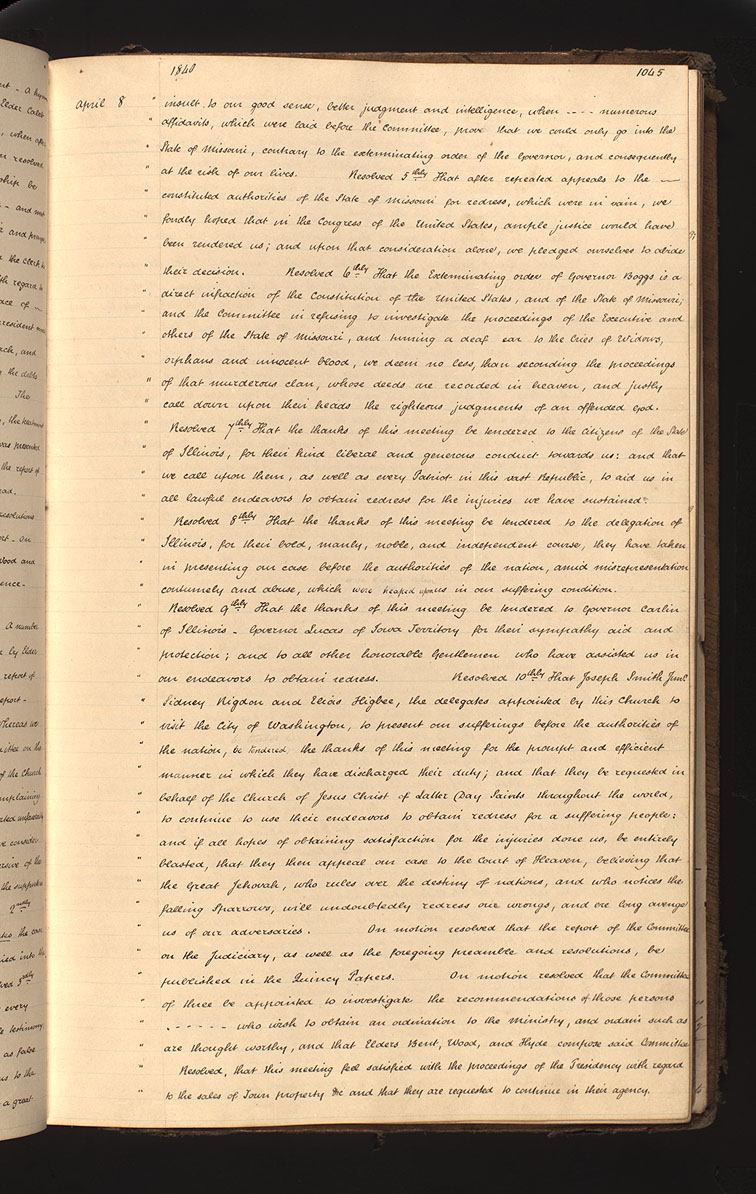 1840 1045
April 8 " insult to our good sense, better judgment and intelligence, when - - - - numerous
" affidavits, which were laid before the Committee, prove that we could only go into the
" State of Missouri, contrary to the exterminating order of the Governor, and consequently
" at the risk of our lives. Resolved 5thly That after repeated appeals to the —
" constituted authorities of the State of Missouri for redress, which were in vain, we
" fondly hoped that in the Congress of the United States, ample justice would have
" been rendered us; and upon that consideration alone, we pledged ourselves to abide
" their decision. Resolved 6thly That the Exterminating order of Governor Boggs is a
" direct infraction of the Constitution of the United States, and of the State of Missouri;
" and the Committee in refusing to investigate the proceedings of the Executive and
" others of the State of Missouri, and turning a deaf ear to the Cries of Widows,
" orphans and innocent blood, we deem no less, than seconding the proceedings
" of that murderous clan, whose deeds are recorded in heaven, and justly
" call down upon their heads the righteous judgments of an offended God.
" Resolved 7thly That the thanks of this meeting be tendered to the Citizens of the State
" of Illinois, for their kind liberal and generous conduct towards us: and that
" we call upon them, as well as every Patriot in this vast Republic, to aid us in
" all lawful endeavors to obtain redress for the injuries we have sustained.
" Resolved 8thly That the thanks of this meeting be tendered to the delegation of
" Illinois, for their bold, manly, noble, and independent course, they have taken
" in presenting our case before the authorities of the nation, amid misrepresentation
" contumely and abuse, which were heaped upon us in our suffering condition.
" Resolved 9thly That the thanks of this meeting be tendered to Governor Carlin
" of Illinois - Governor Lucas of Iowa Territory for their sympathy aid and
" protection; and to all other honorable Gentlemen who have assisted us in
" our endeavors to obtain redress. Resolved 10thly That Joseph Smith Junr.
" Sidney Rigdon and Elias Higbee, the delegates appointed by this Church to
" visit the City of Washington, to present our sufferings before the authorities of
" the nation, be tendered, the thanks of this meeting for the prompt and efficient
" manner in which they have discharged their duty; and that they be requested in
" behalf of the Church of Jesus Christ of Latter Day Saints throughout the world,
" to continue to use their endeavors to obtain redress for a suffering people:
" and if all hopes of obtaining satisfaction for the injuries done us, be entirely
" blasted, that they then appeal our case to the Court of Heaven, believing that
" the Great Jehovah, who rules over the destiny of nations, and who notices the
" falling Sparrows, will undoubtedly redress our wrongs, and ere long avenge
" us of our adversaries. On motion resolved that the report of the Committee
" on the Judiciary, as well as the foregoing preamble and resolutions, be
" published in the Quincy Papers. On motion resolved that the Committee
" of three be appointed to investigate the recommendations of those persons
" - - - - - - who wish to obtain an ordination to the Ministry, and ordain such as
" are thought worthy, and that Elders Bent, Wood, and Hyde compose said Committee
" Resolved, that this meeting feel satisfied with the proceedings of the Presidency with regard
" to the sales of Town property &c and that they are requested to continue in their agency.